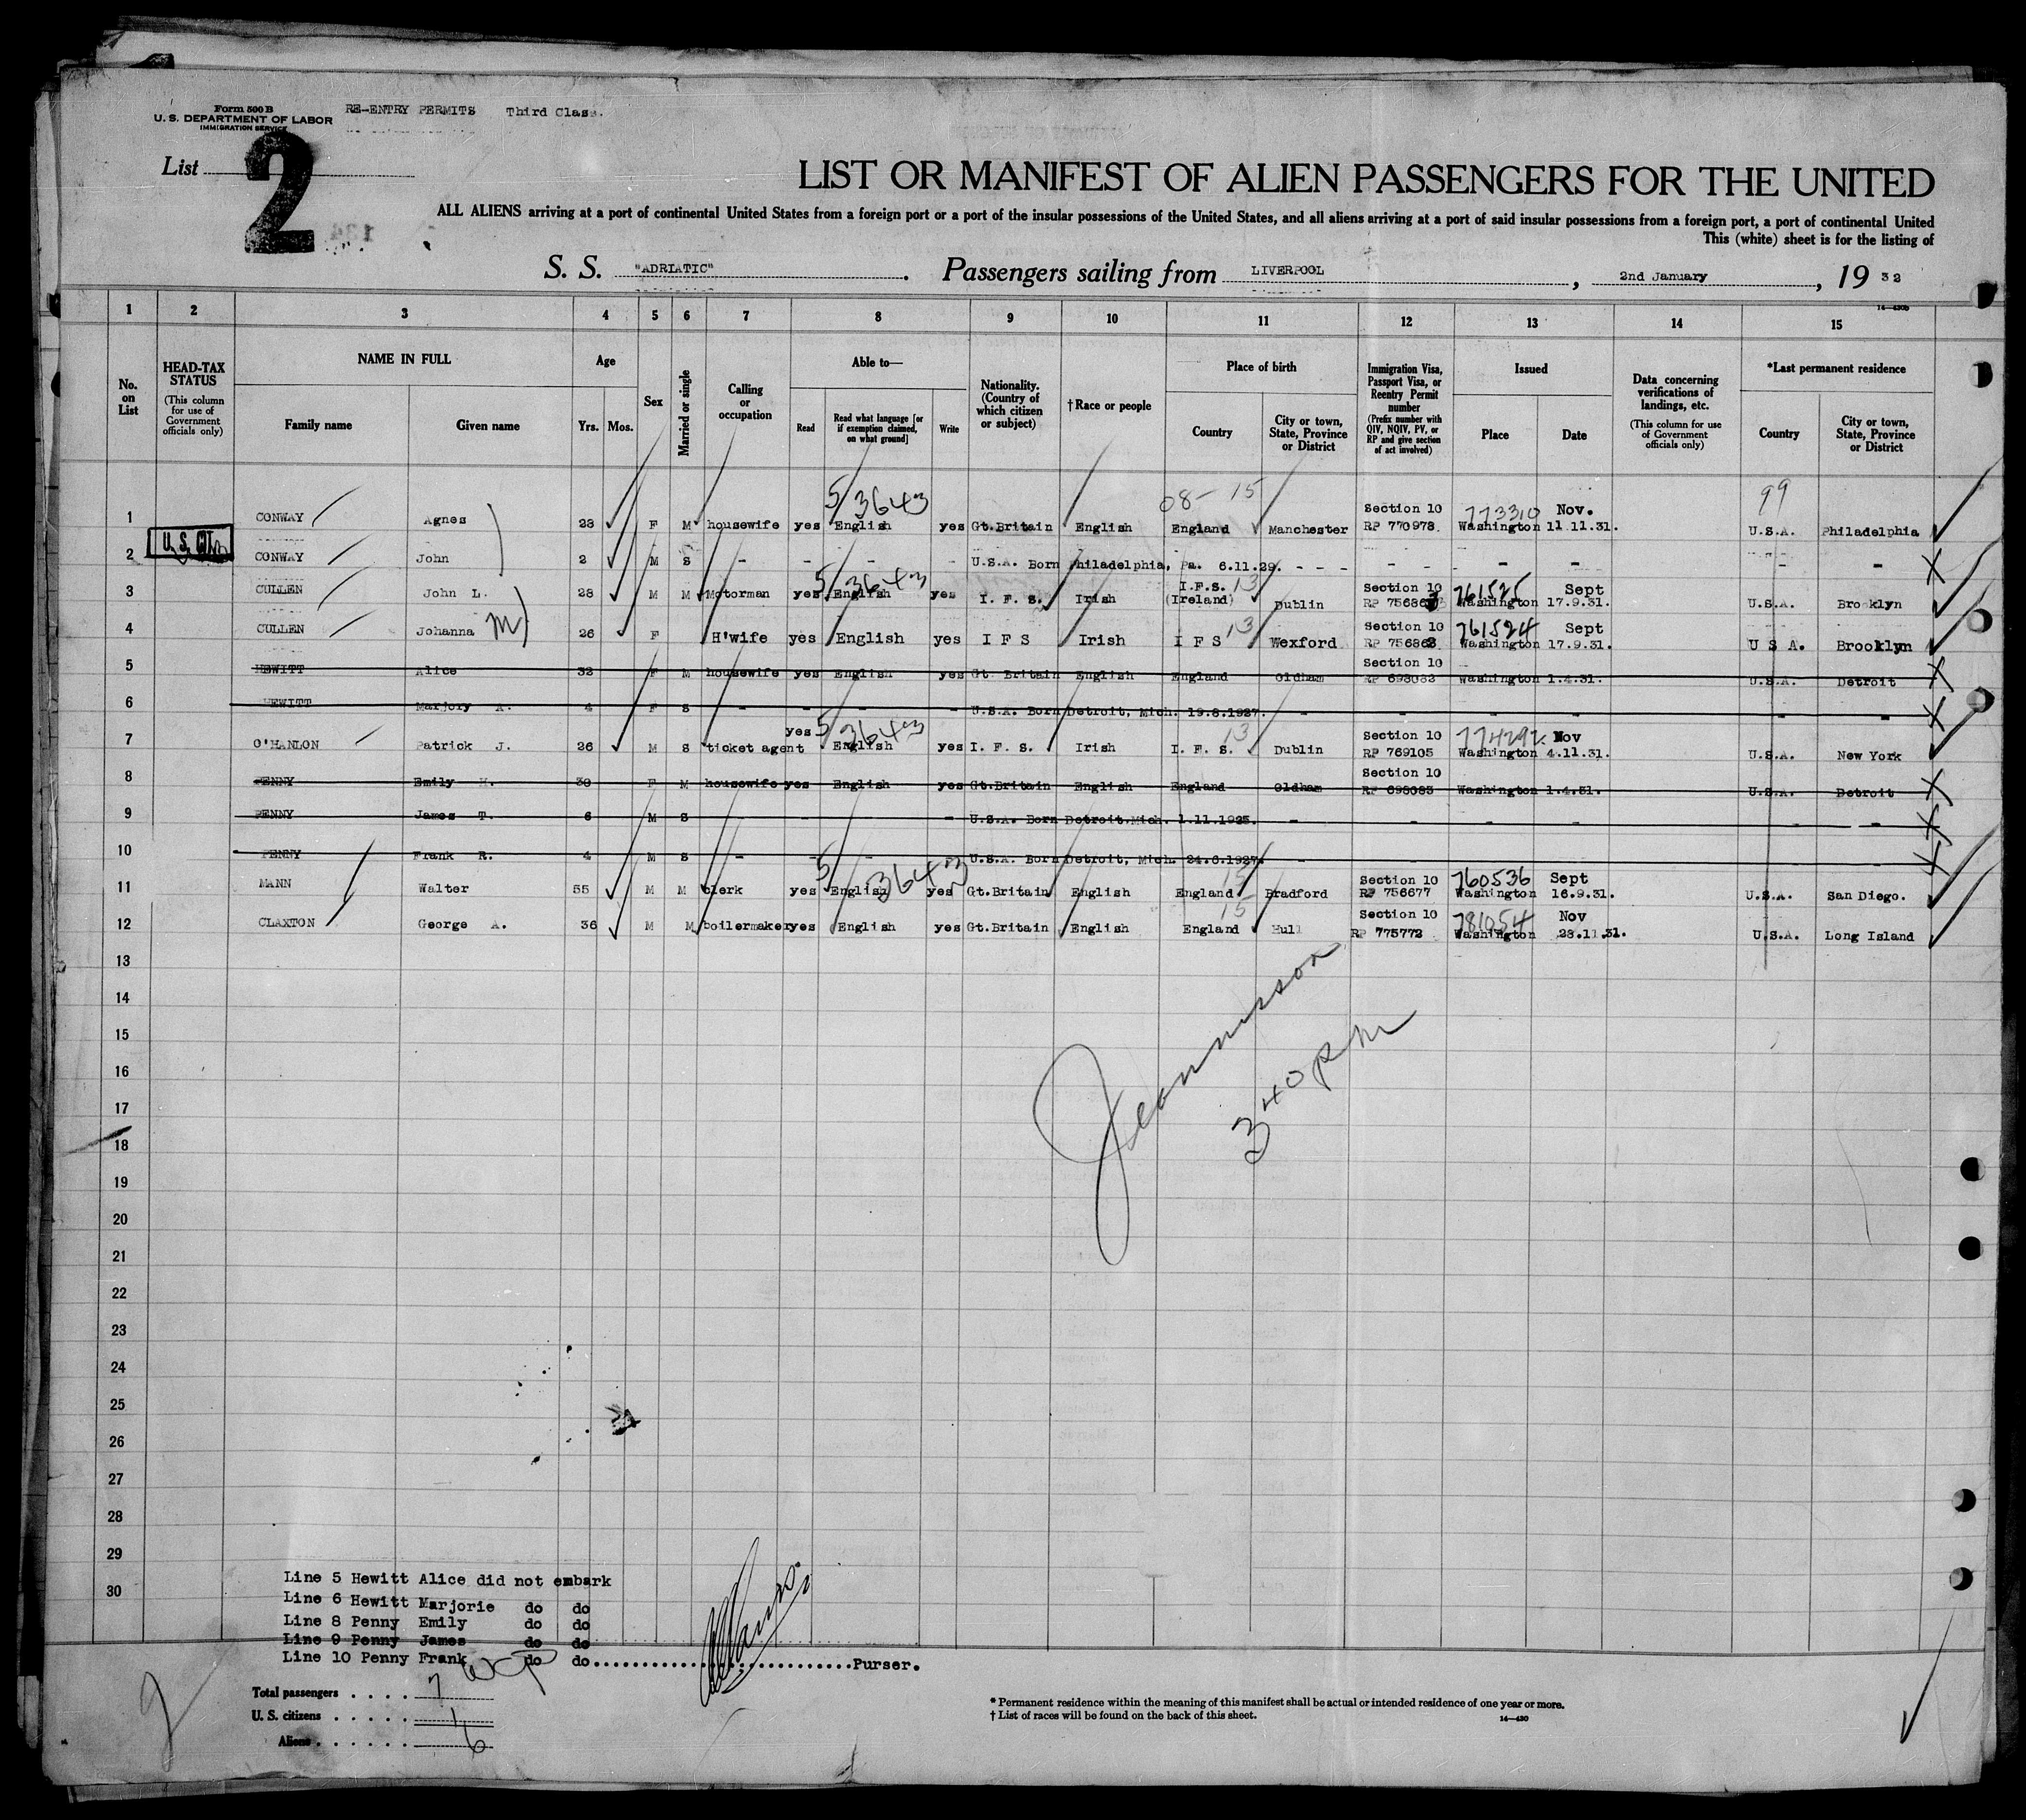 Form 500 B
U. S. DEPARTMENT OF LABOR
IMMIGRATION SERVICE
RE-ENTRY PERMITS Third Class.
List 2
LIST OR MANIFEST OF ALIEN PASSENGERS FOR THE UNITED
ALL ALIENS arriving at a port of continental United States from a foreign port or a port of the insular possessions of the United States, and all aliens arriving at a port of said insular possessions from a foreign port, a port of continental United
This (white) sheet is for the listing of
S. S. "ADRIATIC". Passengers sailing from LIVERPOOL, 2nd January, 19 32
14—430b
1 2 3 4 5 6 7 8 9 10 11 12 13 14 15
No. on List
HEAD-TAX STATUS (This column for use of Government officials only)
NAME IN FULL
Family name Given name
Age
Yrs. Mos.
Sex
Married or single
Calling or occupation
Able to—
Read Read what language [or if exemption claimed, on what ground] Write
Nationality. (Country of which citizen or subject)
†Race or people
Place of birth
Country City or town, State, Province or District
Immigration Visa, Passport Visa, or Reentry Permit number (Prefix number with QIV, NQIV, PV, or RP and give section of act involved)
Issued
Place Date
Data concerning verifications of landings, etc. (This column for use of Government officials only)
*Last permanent residence
Country City or town, State, Province or District
5/3643 08- 15 99
1 CONWAY Agnes 23 F M housewife yes English yes Gt.Britain English England Manchester Section 10 RP 770978. 773310 Nov. Washington 11.11.31. U.S.A. Philadelphia
2 U.S. CIT CONWAY John 2 M S - - - - U.S.A. Born Philadelphia, Pa. 6.11.29. - - - - - - - -
3 CULLEN John L. 28 M M Motorman yes 5/3643 English yes I. F. S. Irish I.F.S. 13 (Ireland) Dublin Section 10 RP 75686 761525 Sept Washington 17.9.31. U.S.A. Brooklyn
4 CULLEN Johanna M 26 F H'wife yes English yes I F S Irish I F S 13 Wexford Section 10 RP 756862 761524 Sept Washington 17.9.31. U S A. Brooklyn
5 HEWITT Alice 32 F M housewife yes English yes Gt Britain English England Oldham Section 10 RP 698082 Washington 1.4.31. U.S.A. Detroit
6 HEWITT Marjory A. 4 F S - - - - U.S.A. Born Detroit, Mich. 19.8.1927. - - - - - -
7 O'HANLON Patrick J. 26 M S ticket agent yes 5/3643 English yes I. F. S. Irish I. F. S. 13 Dublin Section 10 RP 769105 774292 Nov Washington 4.11.31. U.S.A. New York
8 PENNY Emily H. 30 F M housewife yes English yes Gt.Britain English England Oldham Section 10 RP 698083 Washington 1.4.31. U.S.A. Detroit
9 PENNY James T. 6 M S - - - - U.S.A. Born Detroit Mich. 1.11.1925. - - - - - -
10 PENNY Frank R. 4 M S - - - - U.S.A. Born Detroit, Mich. 24.6.1927. -
11 MANN Walter 55 M M clerk yes 5/3643 English yes Gt.Britain English England 15 Bradford Section 10 RP 756677 760536 Sept Washington 16.9.31. U.S.A. San Diego.
12 CLAXTON George A. 36 M M boilermaker yes English yes Gt.Britain English England 15 Hull Section 10 RP 775772 781054 Nov Washington 28.11.31. U.S.A. Long Island
13
14
15
16
17
18
19
20
21
22
23
24
25
26
27
28
29
30
3 40 pm
Line 5 Hewitt Alice did not embark
Line 6 Hewitt Marjorie do do
Line 8 Penny Emily do do
Line 9 Penny James do do
Line 10 Penny Frank do do..............................Purser.
Total passengers . . . . 7
U. S. citizens . . . . . 1
Aliens . . . . . . 6
2
* Permanent residence within the meaning of this manifest shall be actual or intended residence of one year or more.
† List of races will be found on the back of this sheet.
14—430